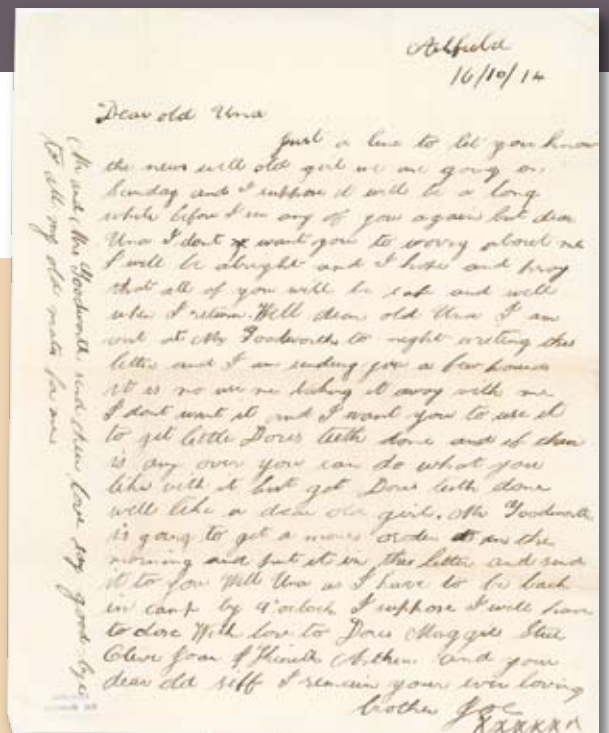 Ashfield
16/10/14
Dear old Una
Just a line to let you know
the news well old girl we are going on
Sunday and I suppose it will be a long
while before I see any of you again but dear
Una I dont want you to worry about me
I will be alright and I hope and pray
that all of you will be safe and well
when I return. Well dear old Una I am
out at Mr Goodworths to night writing this
letter and I am sending you a few pounds
it is no use me taking it away with me
I dont want it and I want you to use it
to get little Doris teeth done and if there
is any over you can do what you
like with it but get Doris teeth done
well like a dear old girl. Mr Goodworth
is going to get a money order in the
morning and put it in this letter and send
it to you Well Una as I have to be back
in camp by 9 oclock I suppose I will have
to close With love to Doris Maggie
Clive Joan Arthur and your
dear old I remain your ever loving
brother Joe
xxxxxx
Mr and Mrs Goodworth send their love say good bye
to all my old mates for me